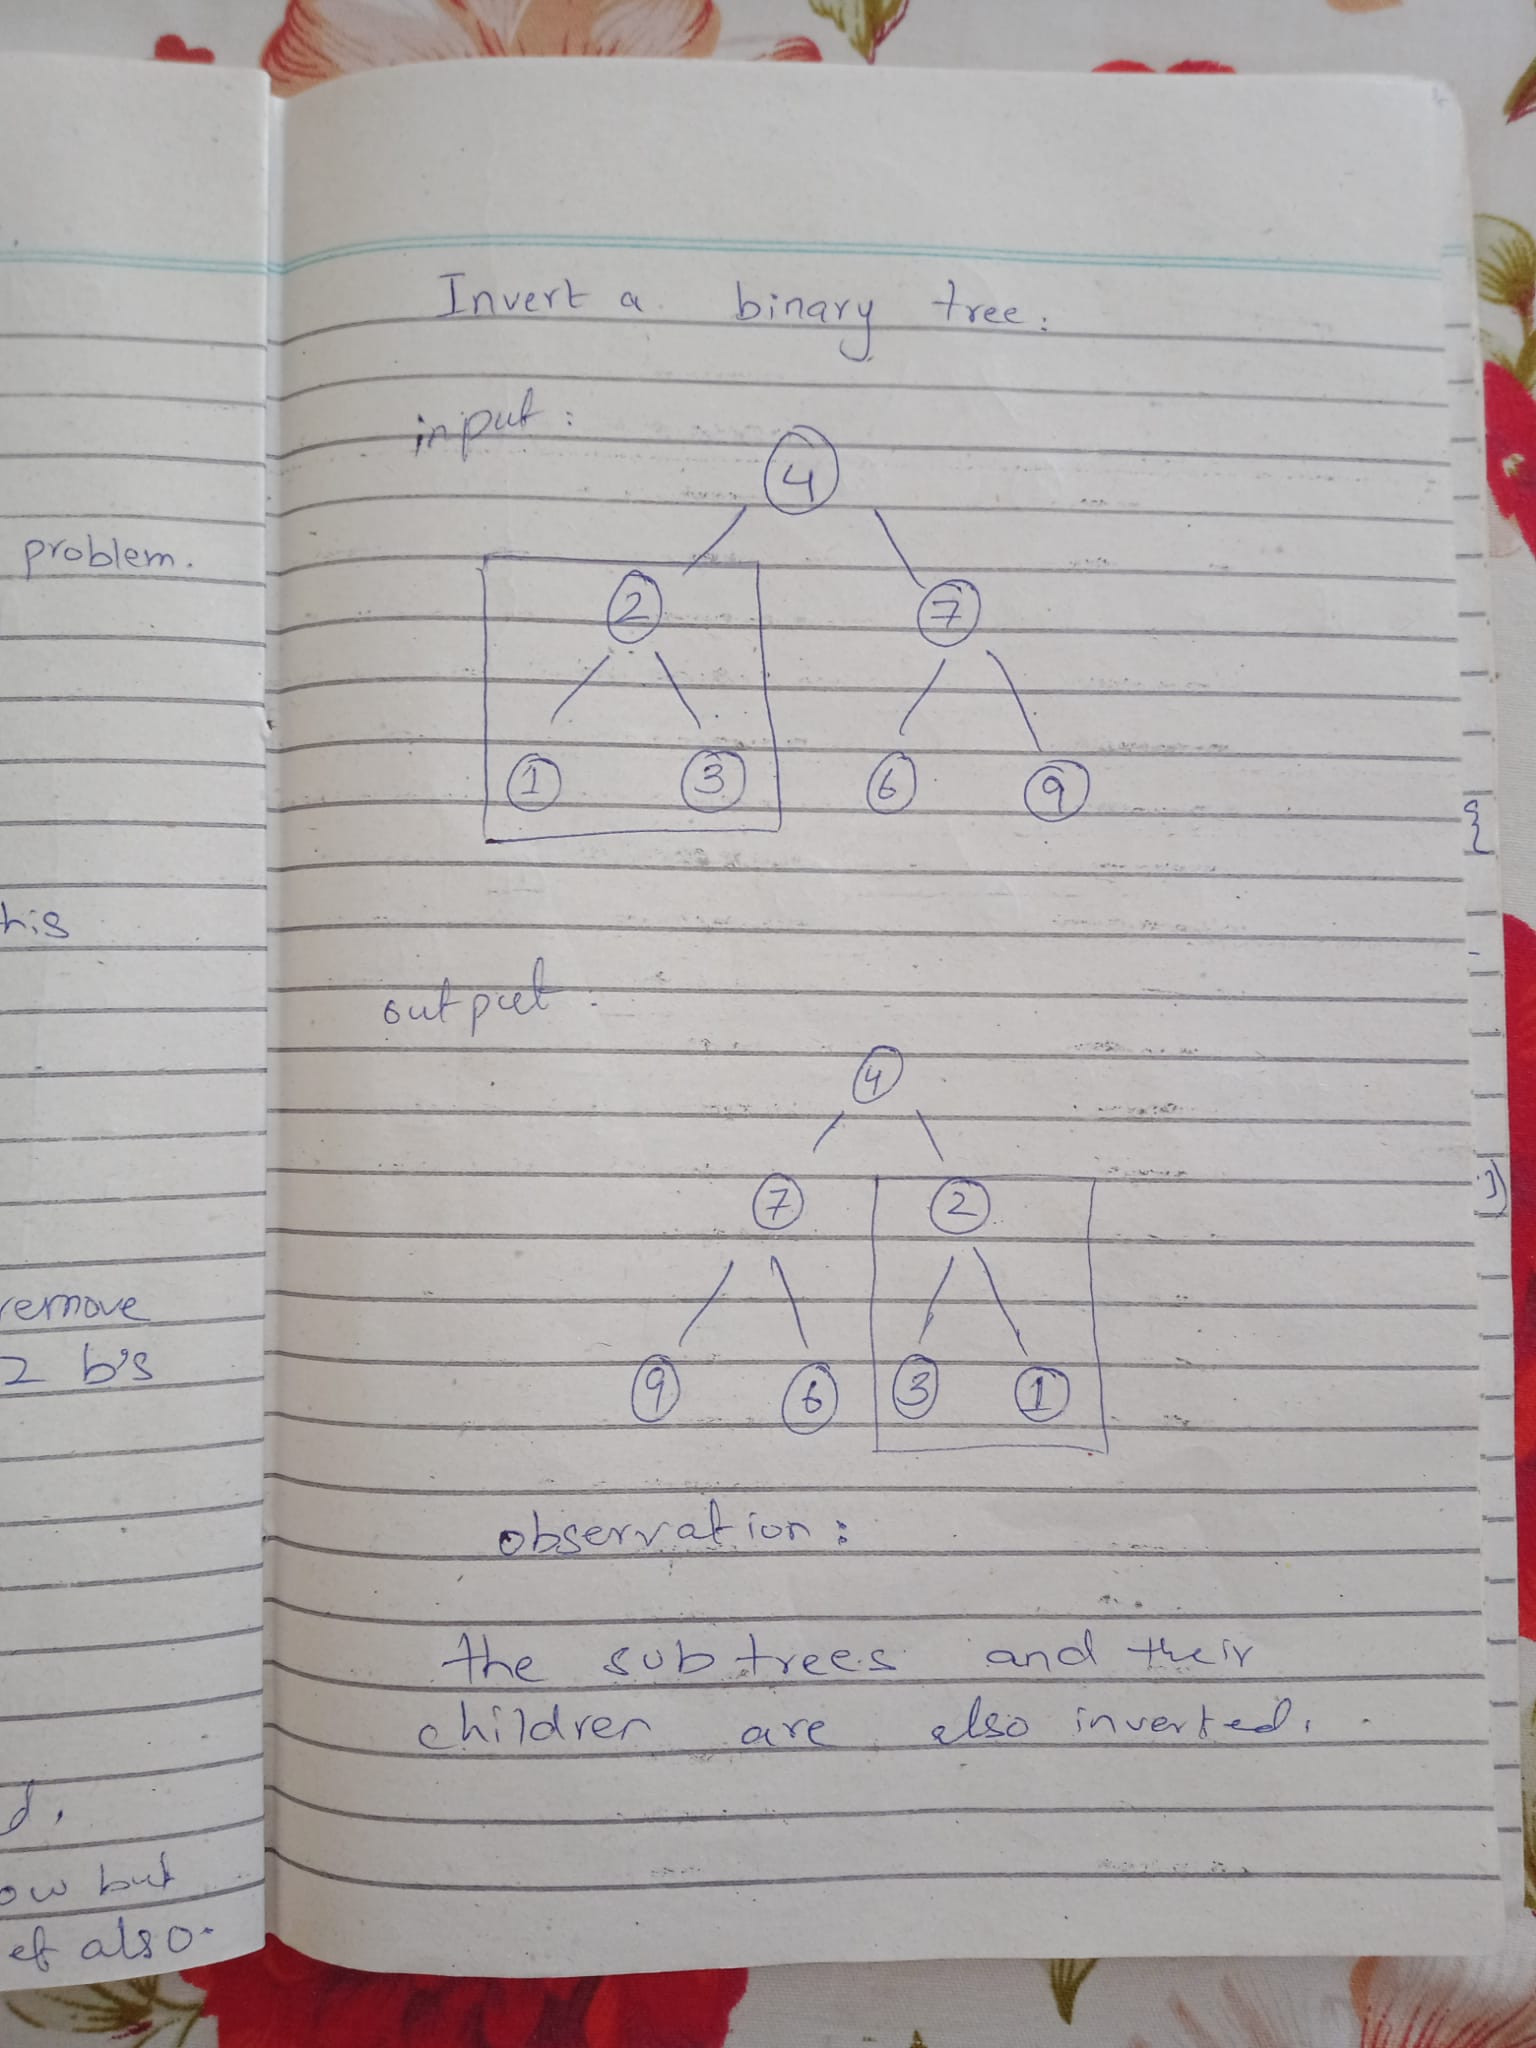 problem.
his
remove
2 b's
d.
ow but
ef also.
Invert a binary tree:
input:
4
2 7
1 3 6 9
output:
4
7 2
9 6 3 1
observation:
the subtrees and their
children are also inverted.